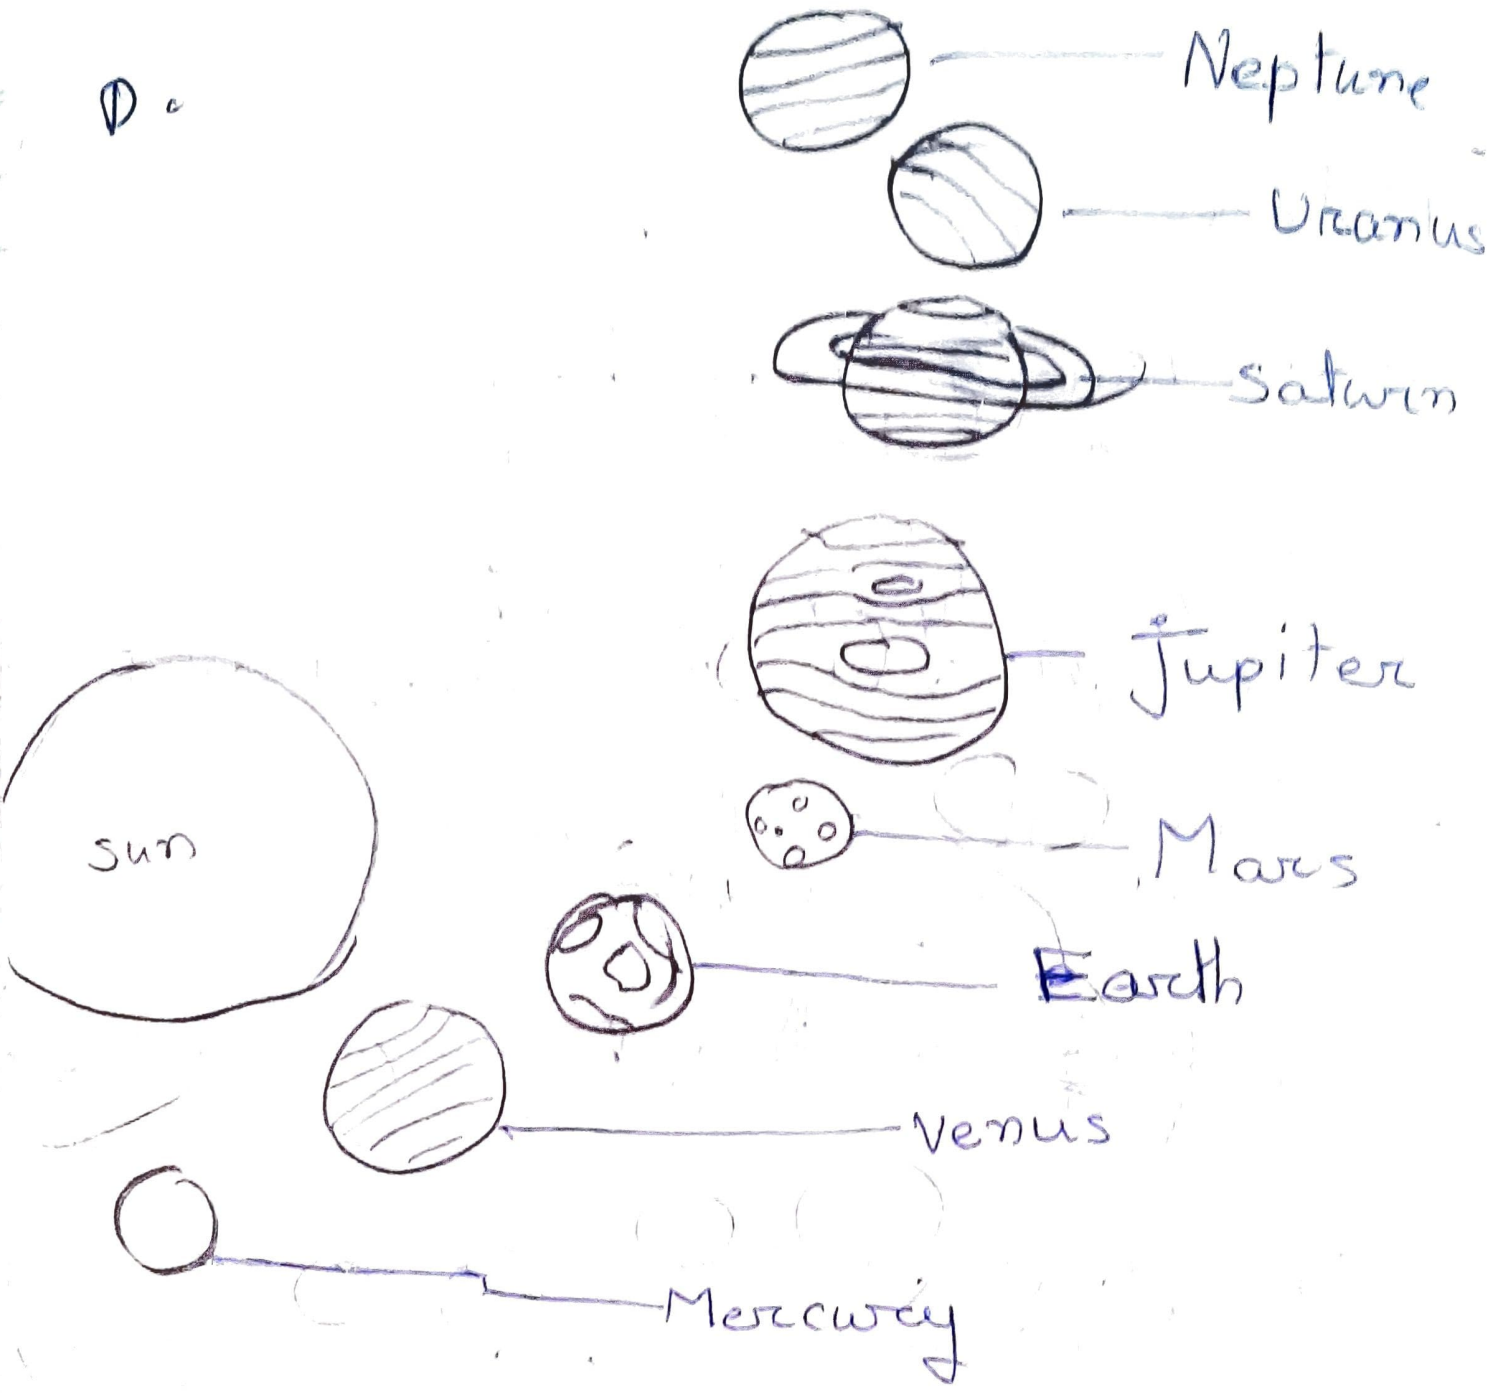 D.
Neptune
Uranus
Saturn
Jupiter
sun
Mars
Earth
Venus
Mercury